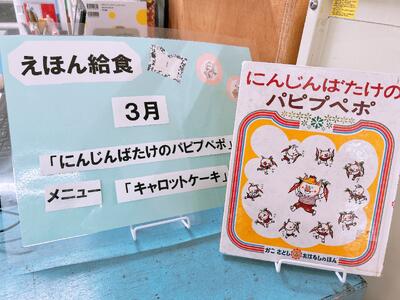 えほん給食
3月
「にんじんばたけのパピプペポ」
メニュー 「キャロットケーキ」
にんじんばたけの
パピプペポ
かこ さとし おはなしのほん